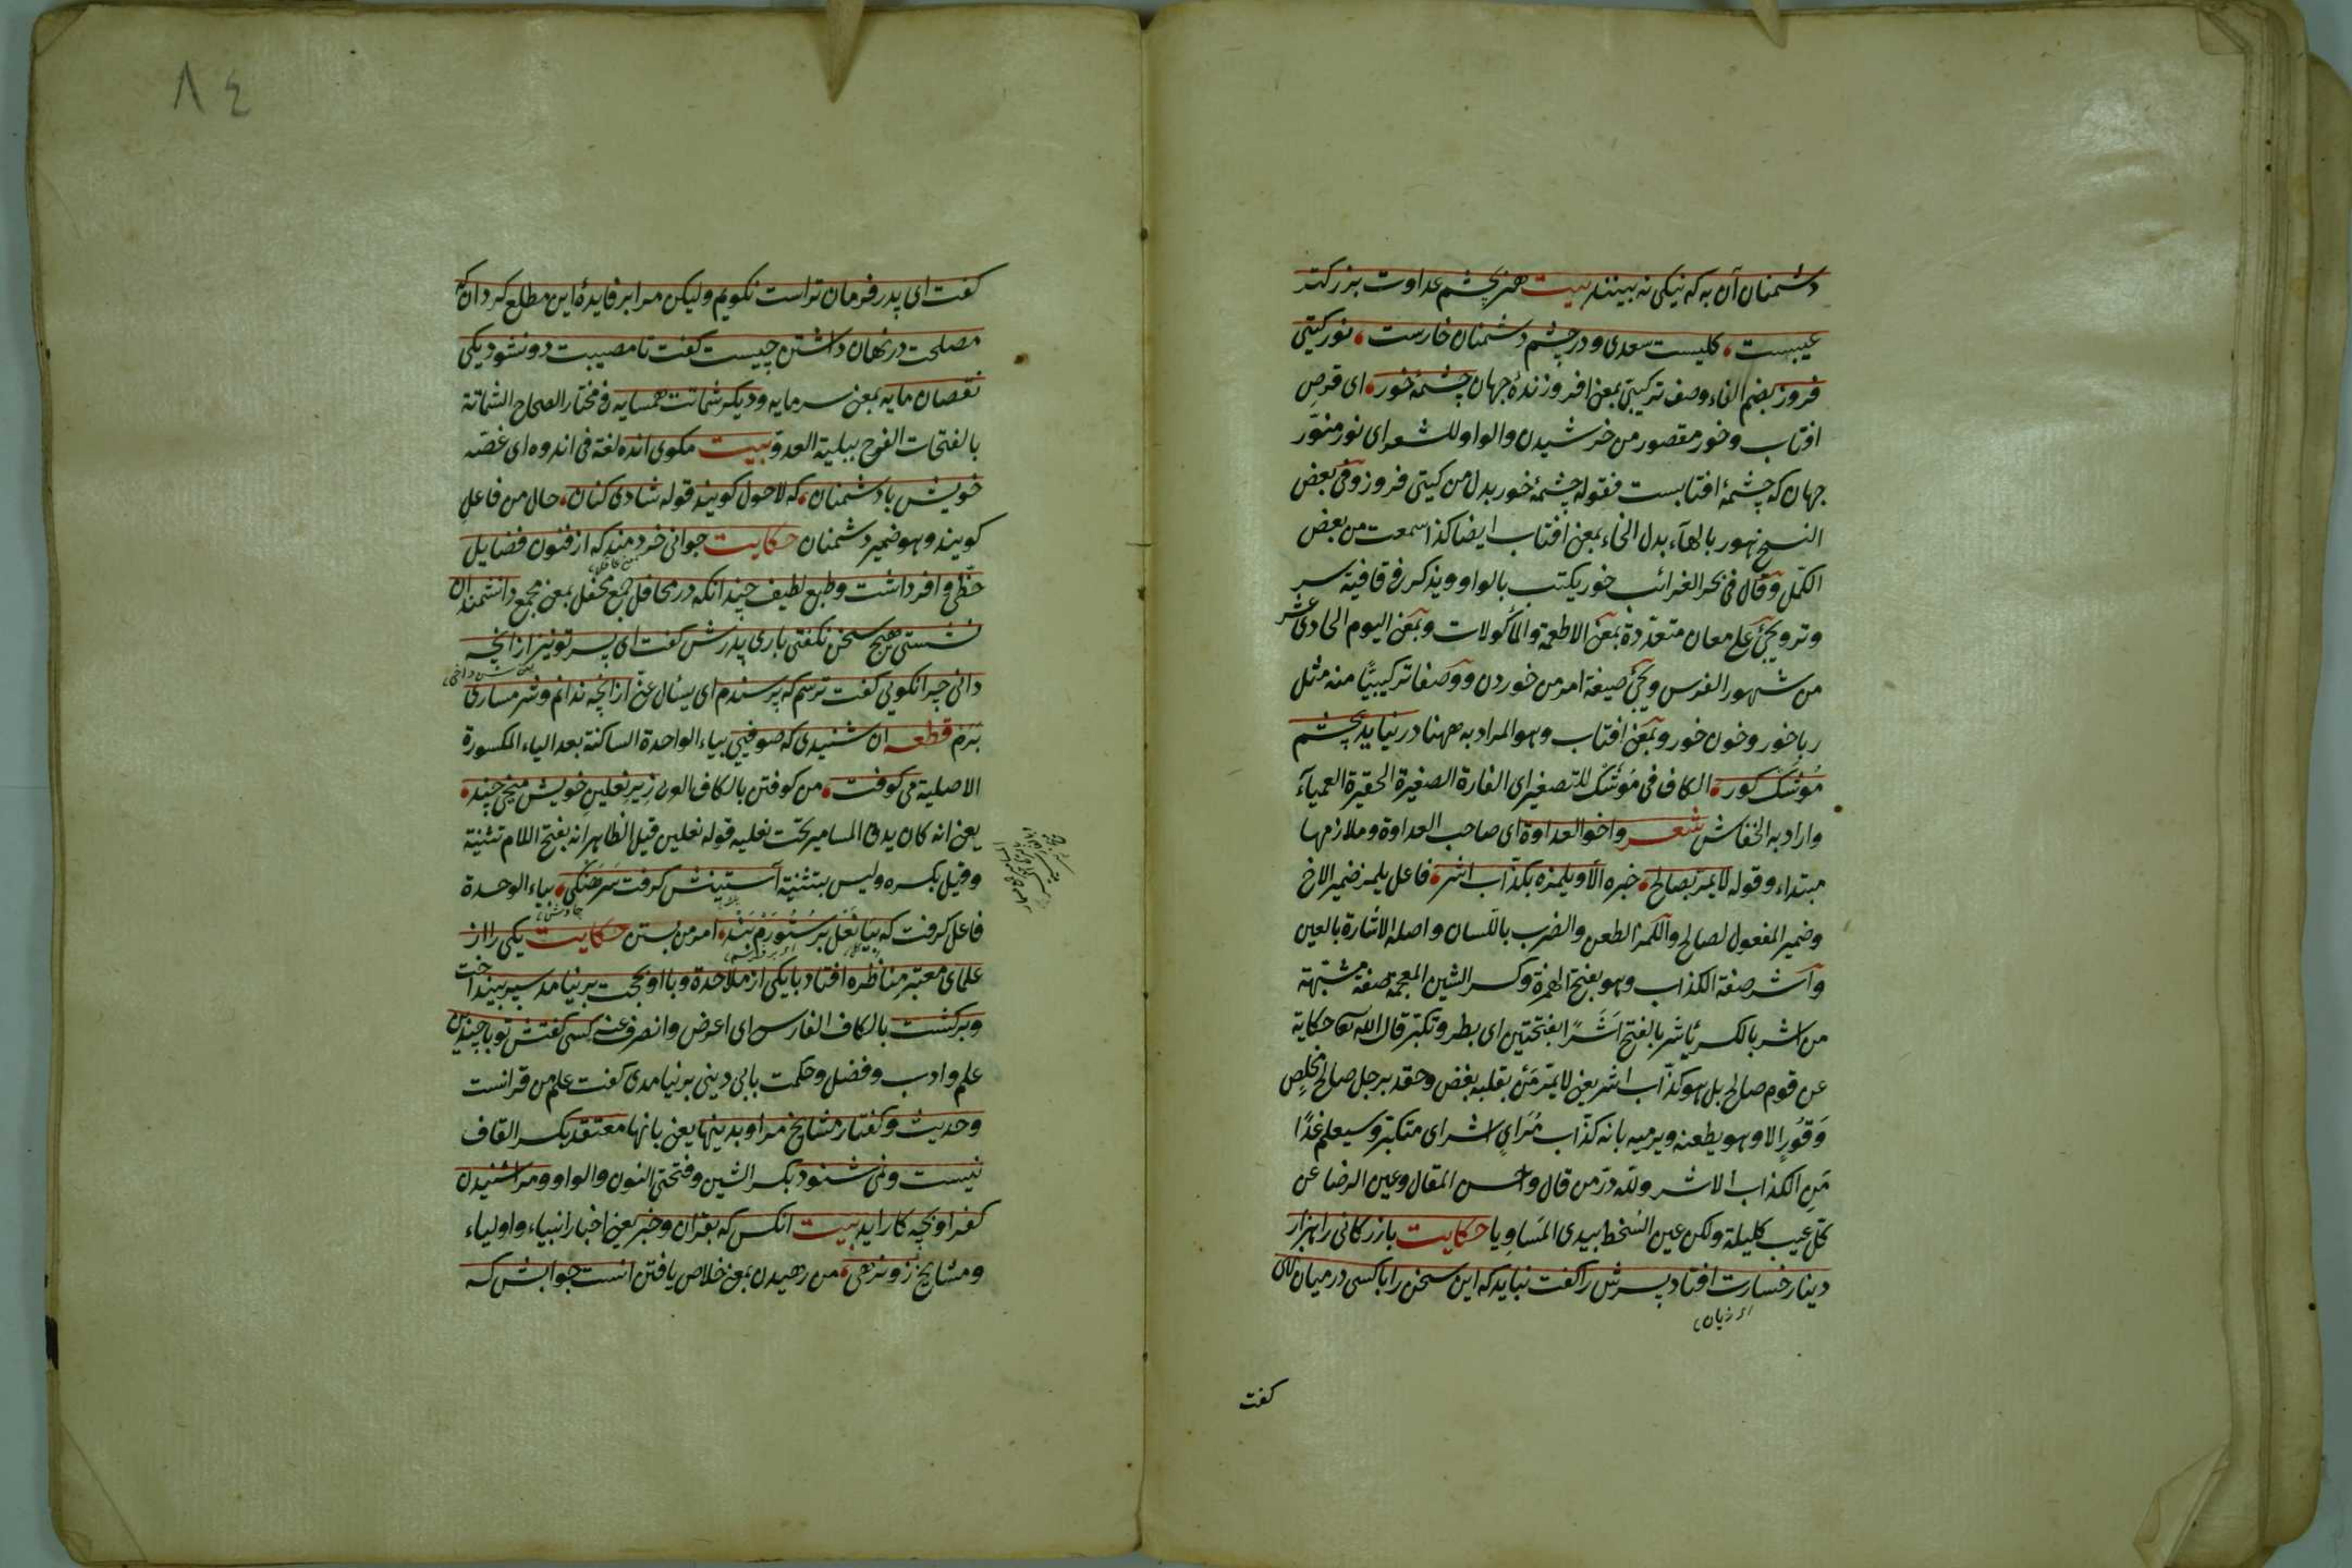 دشمنان آن به که نیکی نه بینند بیت هنر بچشم عداوت بزرکتر
عیبست کلیست سعدی ودر چشم دشمنان خارست نور کیتی
فروز بضم الفاء وصف ترکیبی بمعنی افروزندهٔ جهان چشمهٔ خور ای قرص
افتاب وخور مقصور من خرشیدن والواو للشعر ای نور منوّر
جهان که چشمهٔ افتابست فقوله چشمهٔ خور بدل من کیتی فروز وفی بعض
النسخ هور بالهآء بدل الخاء بمعنی افتاب ایضا کذا سمعت من بعض
الکمّل وقال فی بحر الغرائب خور یکتب بالواو ویذکر فی قافیة سر
وتر ویجیٔ علی معان متعدّدة بمعنی الاطعمة والمأکولات وبمعنی الیوم الحادی عشر
من شهور الفرس ویجیٔ صیغة امر من خوردن ووصفا ترکیبیًّا منه مثل
ربا خور وخون خور وبمعنی افتاب وهو المراد به ههنا در نیاید بچشم
مُوشَک کور الکاف فی مُوشَک للتصغیر ای الفارة الصغیرة الحقیرة العمیآء
واراد به الخفاش شعر واخو العداوة ای صاحب العداوة وملازمها
مبتداء وقوله لایمرّ بصالح خبره الاّ ویلمزه بکذّاب اشر فاعل یلمز ضمیر الاخ
وضمیر المفعول لصالح واللمز الطعن والضرب باللسان واصله الاشارة بالعین
وآشر صفة الکذاب وهو بفتح الهمزة وکسر الشین المعجمة صفة مشبّهة
من اشر بالکسر یأشر بالفتح اَشَرًا بفتحتین ای بطر وتکبّر قال الله تعا حکایة
عن قوم صالح بل هو کذّاب اشر یعنی لایمرّ مَن بقلبه بغض وحقد برجل صالح مخلِصٍ
وَقُورٍ الا وهو یطعنه ویرمیه بانه کذّاب مُرَایٍ اشر ای متکبّر وسیعلم غدًا
مَنِ الکذاب الاشر ولله درّ من قال واحسن المقال وعین الرضا عن
کلّ عیب کلیلة ولکن عین السُخط یبدی المَسَاوِیا حکایت بازرکانی را هزار
دینار خسارت افتاد پسرش را کفت نباید که این سخن را با کسی در میان
ای زیان
کفت
٨٤
کفت ای پدر فرمان تراست نکویم ولیکن مرا بر فایدهٔ این مطلع کردان که
مصلحت در نهان داشتن چیست کفت تا مصیبت دو نشود یکی
نقصان مایه بمعنی سرمایه ودیکر شماتت همسایه فی مختار الصحاح الشماتة
بالفتحات الفرح ببلیة العدوّ بیت مکوی انده لغة فی اندوه ای غصّه
خویش با دشمنان که لاحول کویند قوله شادی کنان حال من فاعلِ
کویند وهو ضمیر دشمنان حکایت جوانی خردمند که از فنون فضایل
حظّی وافر داشت وطبع لطیف چندانکه در محافل جمع محفل بمعنی مجمع دانشمندان
نشستی هیچ سخن نکفتی باری پدرش کفت ای پسر تو نیز ازانچه
دانی چرا نکویی کفت ترسم که پرسندم ای یسئال عنّی ازانچه ندانم وشرمساری
بَرَم قطعه ان شنیدی که صوفییی بیاء الواحدة الساکنة بعد الیاء المکسورة
الاصلیة می کوفت من کوفتن بالکاف العربی زیر نعلین خویش میخی چند
یعنی انه کان یدق المسامیر تحت نعلیه قوله نعلین قیل الظاهر انه بفتح اللام تثنیة
وقیل بکسره ولیس بتثنیة آستینش کرفت سَرهَنکی بیاء الوحدة
فاعل کرفت که بیا نعل بر سُتُورَم بَند امر من بستن حکایت یکی را از
علمای معتبر مناظره افتاد با یکی از ملاحدة وبا او بحجت بر نیامد سپر بینداخت
وبرکشت بالکاف الفارسی ای اعرض وانصرف عنه کسی کفتش تو با چندین
علم وادب وفضل وحکمت با بی دینی بر نیامدی کفت علم من قرانست
وحدیث وکفتار مشایخ مر او بدینها یعنی بانها معتقد بکسر القاف
نیست ونمی شنود بکسر الشین وفتحتی النون والواو ومرا شنیدن
کفر او بچه کار اید بیت انکس که بقران وخبر یعنی اخبار انبیاء واولیاء
ومشایخ زو نرهی من رهیدن بمعنی خلاص یافتن انست جوابش که